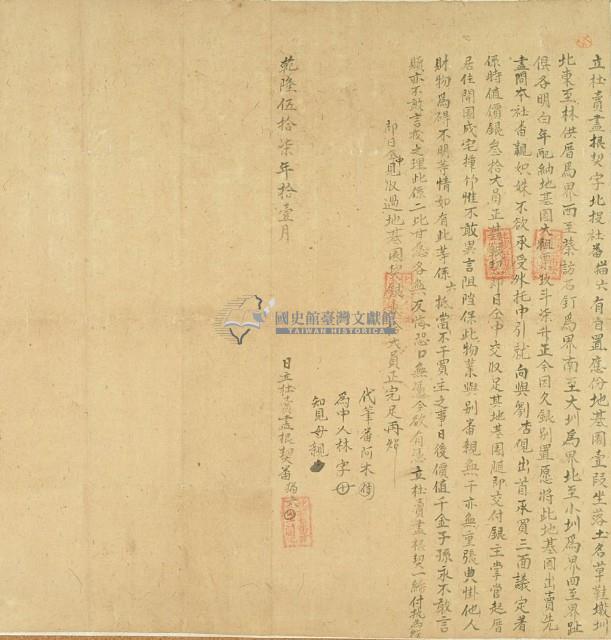 立杜賣盡根契字北投社番猫六有自置應份地基園壹叚坐落土名草鞋墩圳
北東至林供厝為界西至蔡訪石釘為界南至大圳為界北至小圳為界四至界趾
俱各明白年配納地基園大租粟玖斗柒升正今因欠銀別置愿將此地基園出賣先
盡問本社番親姒姝不欲承受外托中引就向與劉 觀出首承買三面議定着
依時值價銀叁拾大員正其銀契即日仝中交收足其地基園隨即交付銀主掌管起厝
居住開園成宅插竹惟不敢異言阻隆保此物業與別番親無干亦無重張典掛他人
財物為碍不明等情如有此等係六抵當不干買主之事日後價值千金子孫永不敢言
贖亦不敢言找之理此係二比甘愿各無反悔恐口無憑今欲有憑立杜賣盡根契一紙付执為炤
即日仝中見收過地基園契銀叁拾大員正完足再炤
代筆番阿木
為中人林字
知見母親
乾隆伍拾柒年拾壹月 日立杜賣盡根契番猫六
國史館臺灣文獻館
TAIWAN HISTORICA